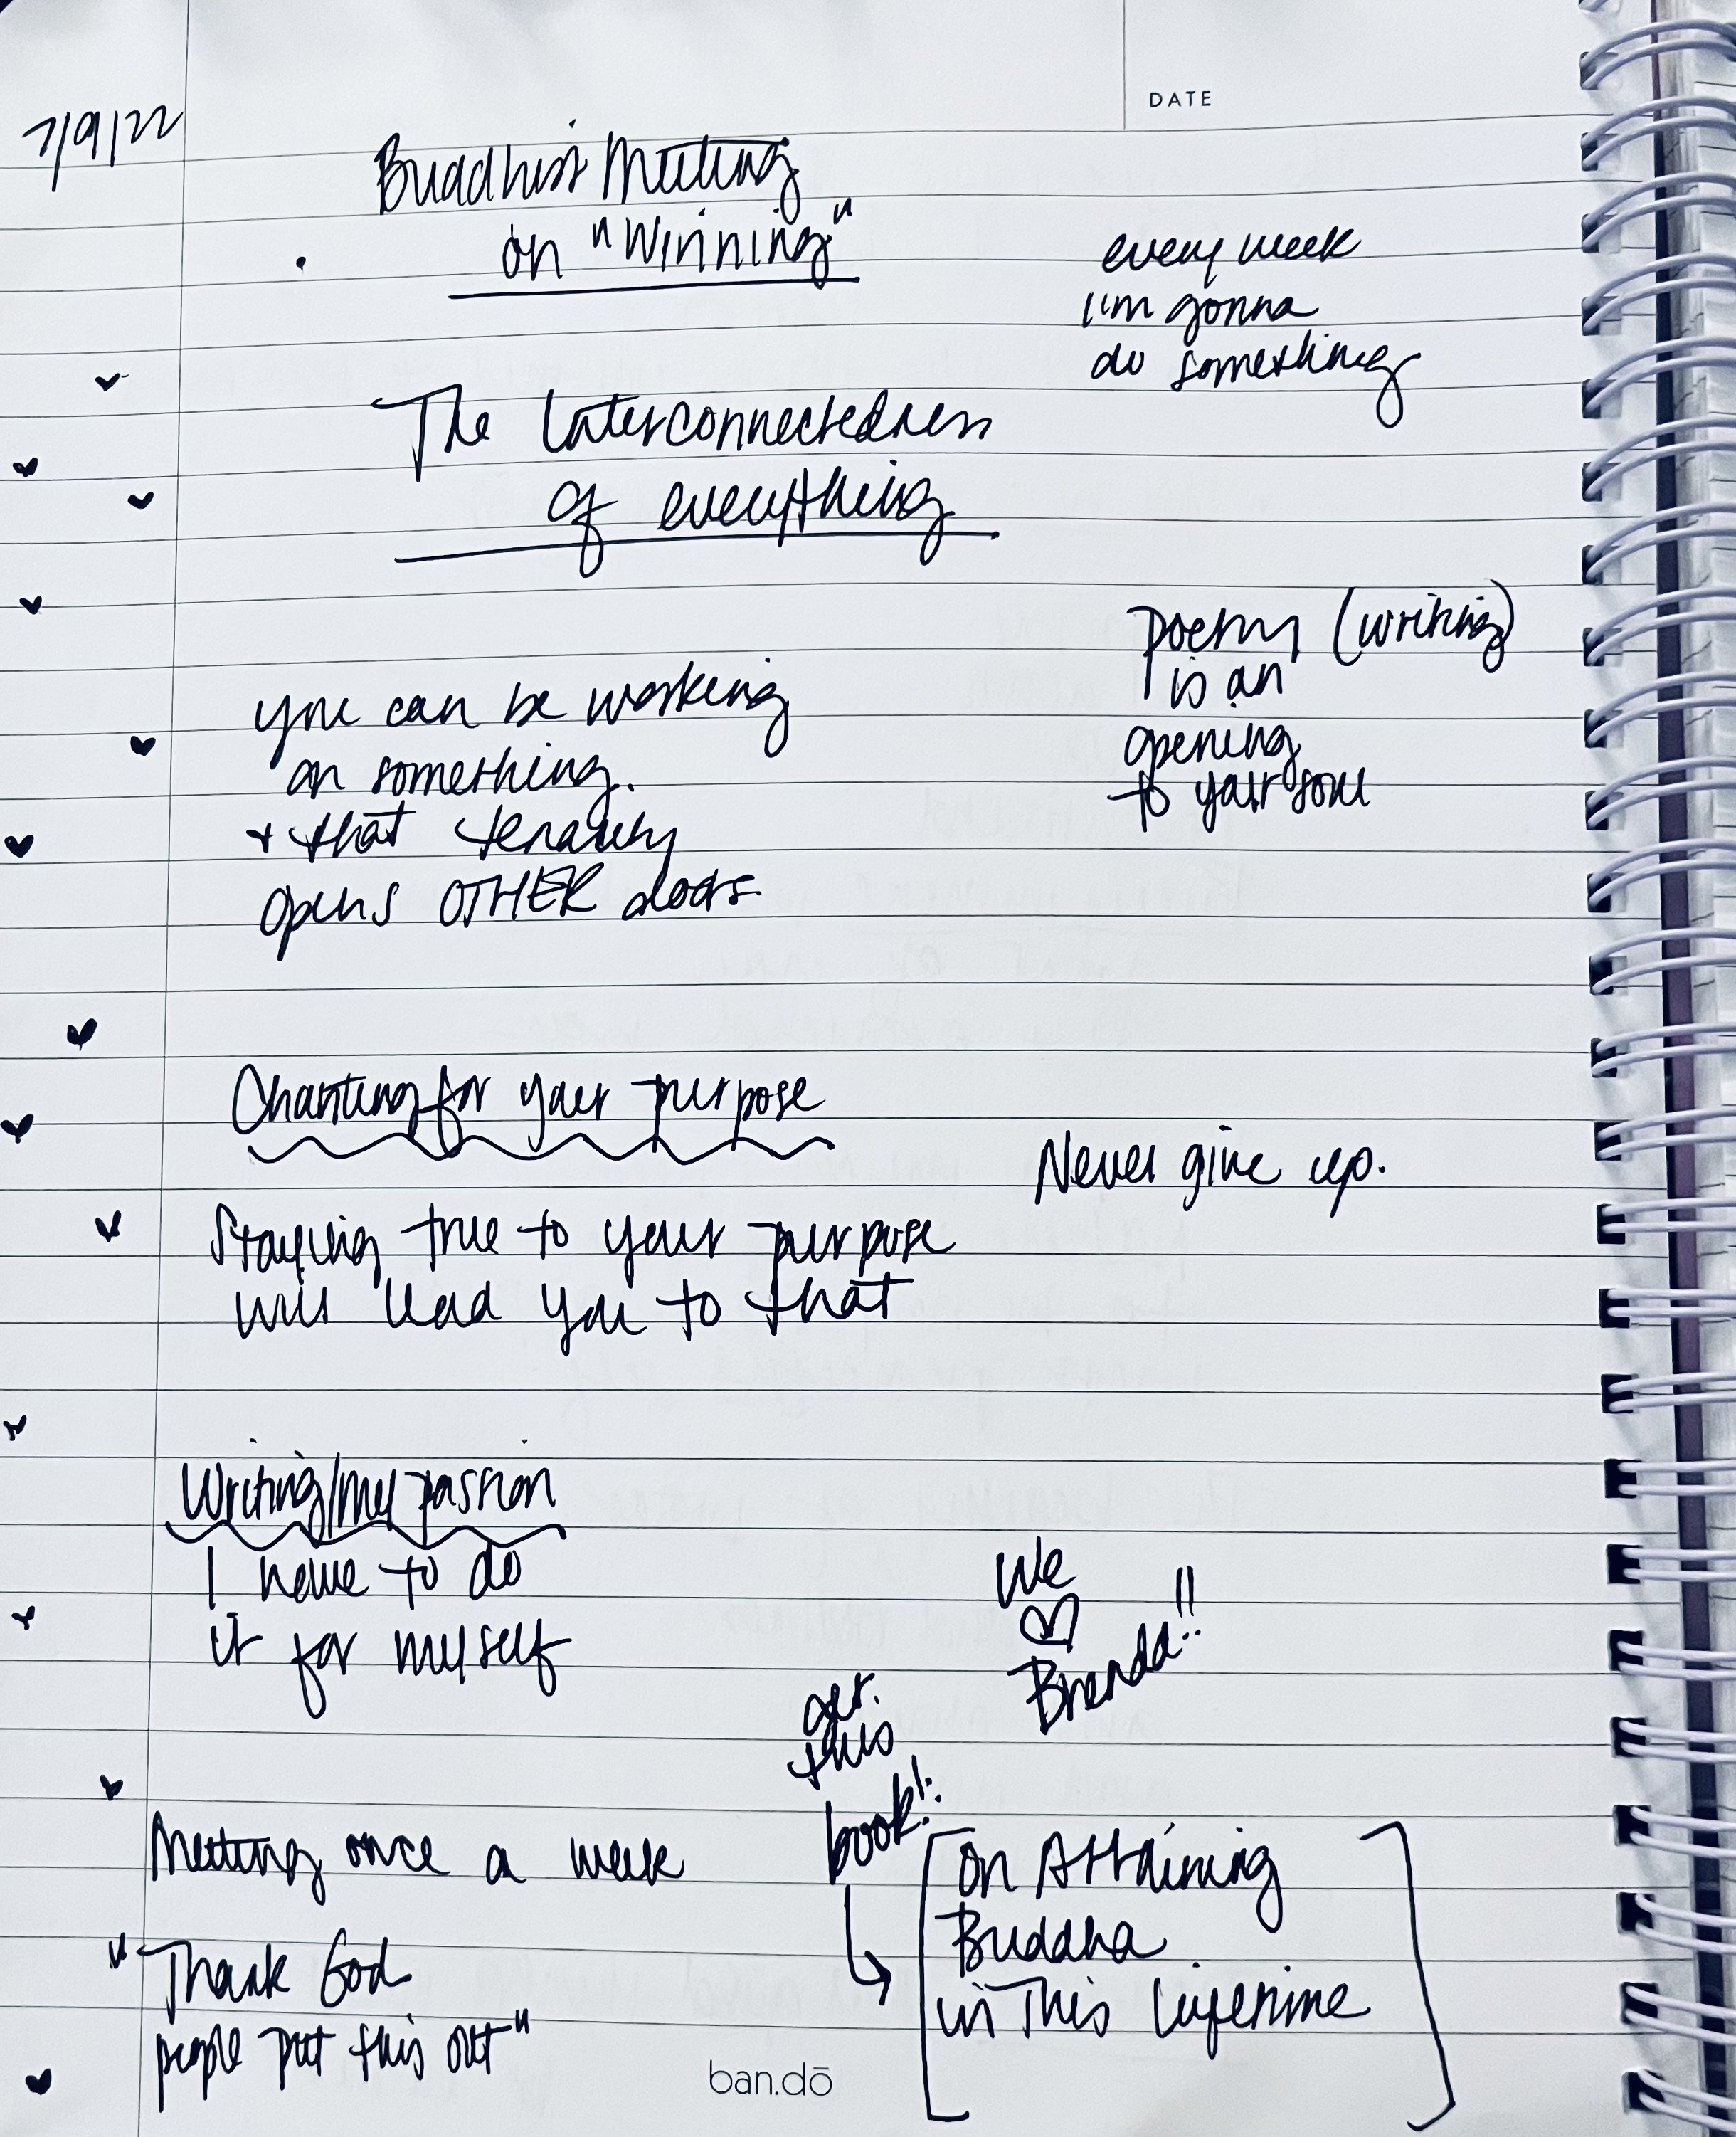 DATE
7/9/22
Buddhist Meeting
on "Winning"
every week
I'm gonna
do something
The Interconnectedness
of everything
poetry (writing)
is an
opening
to your soul
you can be working
on something.
+ that tenacity
opens OTHER doors
Chanting for your purpose
Never give up.
Staying true to your purpose
will lead you to that
Writing/my passion
I have to do
it for myself
We
♡
Brenda!!
get
this
book!:
Meeting once a week
On Attaining
Buddha
in This Lifetime
"Thank God
people put this out"
ban.dō